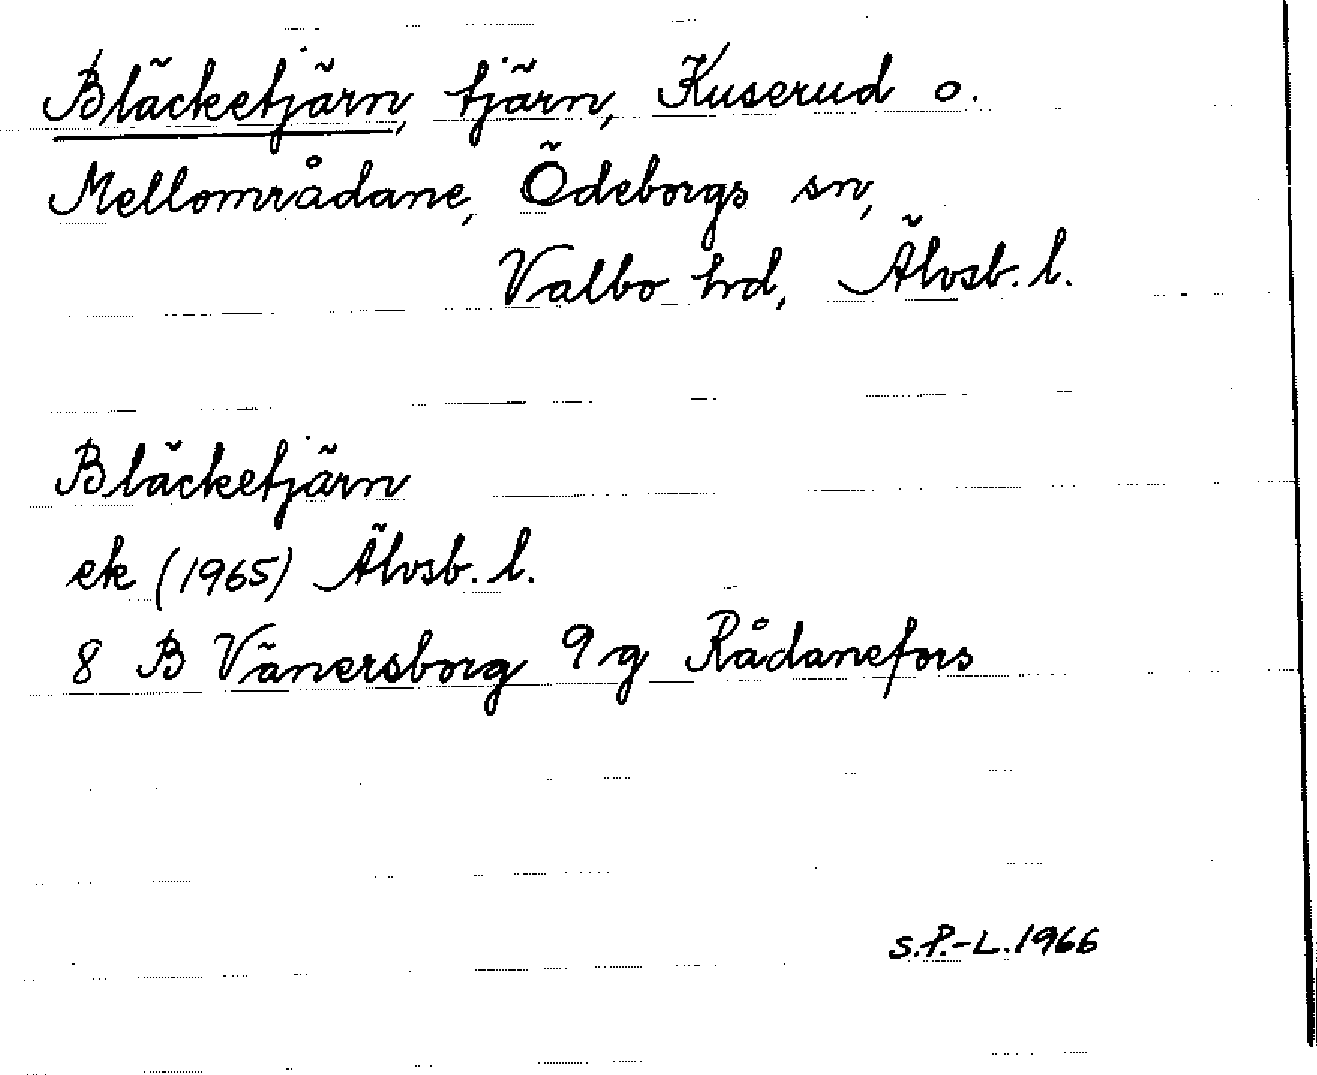 Bläcketjärn, tjärn, Kuserud o.
Mellområdane, Ödeborgs sn,
Valbo hrd, Älvsb. l.
Bläcketjärn
ek (1965) Älvsb. l.
8 B Vänersborg 9 g Rådanefors
S.P.-L. 1966